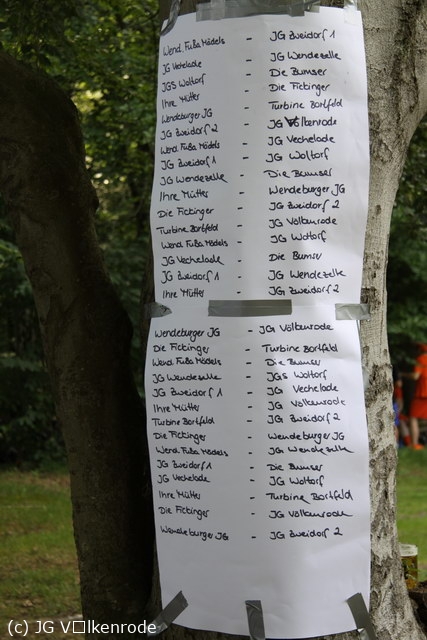 Wend. Fußa Mädels - JG Zweidorf 1
JG Vechelade - JG Wendezelle
JGS Woltorf - Die Bumser
Ihre Mütter - Die Fickinger
Wendeburger JG - Turbine Bortfeld
JG Zweidorf 2 - JG Völkenrode
Wend. Fußa Mädels - JG Vechelade
JG Zweidorf 1 - JG Woltorf
JG Wendezelle - Die Bumser
Ihre Mütter - Wendeburger JG
Die Fickinger - JG Zweidorf 2
Turbine Bortfeld - JG Völkenrode
Wend. Fußa Mädels - JG Woltorf
JG Vechelade - Die Bumser
JG Zweidorf 1 - JG Wendezelle
Ihre Mütter - JG Zweidorf 2
Wendeburger JG - JG Völkenrode
Die Fickinger - Turbine Bortfeld
Wend. Fußa Mädels - Die Bumser
JG Wendezelle - JGS Woltorf
JG Zweidorf 1 - JG Vechelade
Ihre Mütter - JG Völkenrode
Turbine Bortfeld - JG Zweidorf 2
Die Fickinger - Wendeburger JG
Wend. Fußa Mädels - JG Wendezelle
JG Zweidorf 1 - Die Bumser
JG Vechelade - JG Woltorf
Ihre Mütter - Turbine Bortfeld
Die Fickinger - JG Völkenrode
Wendeburger JG - JG Zweidorf 2
(c) JG V□lkenrode